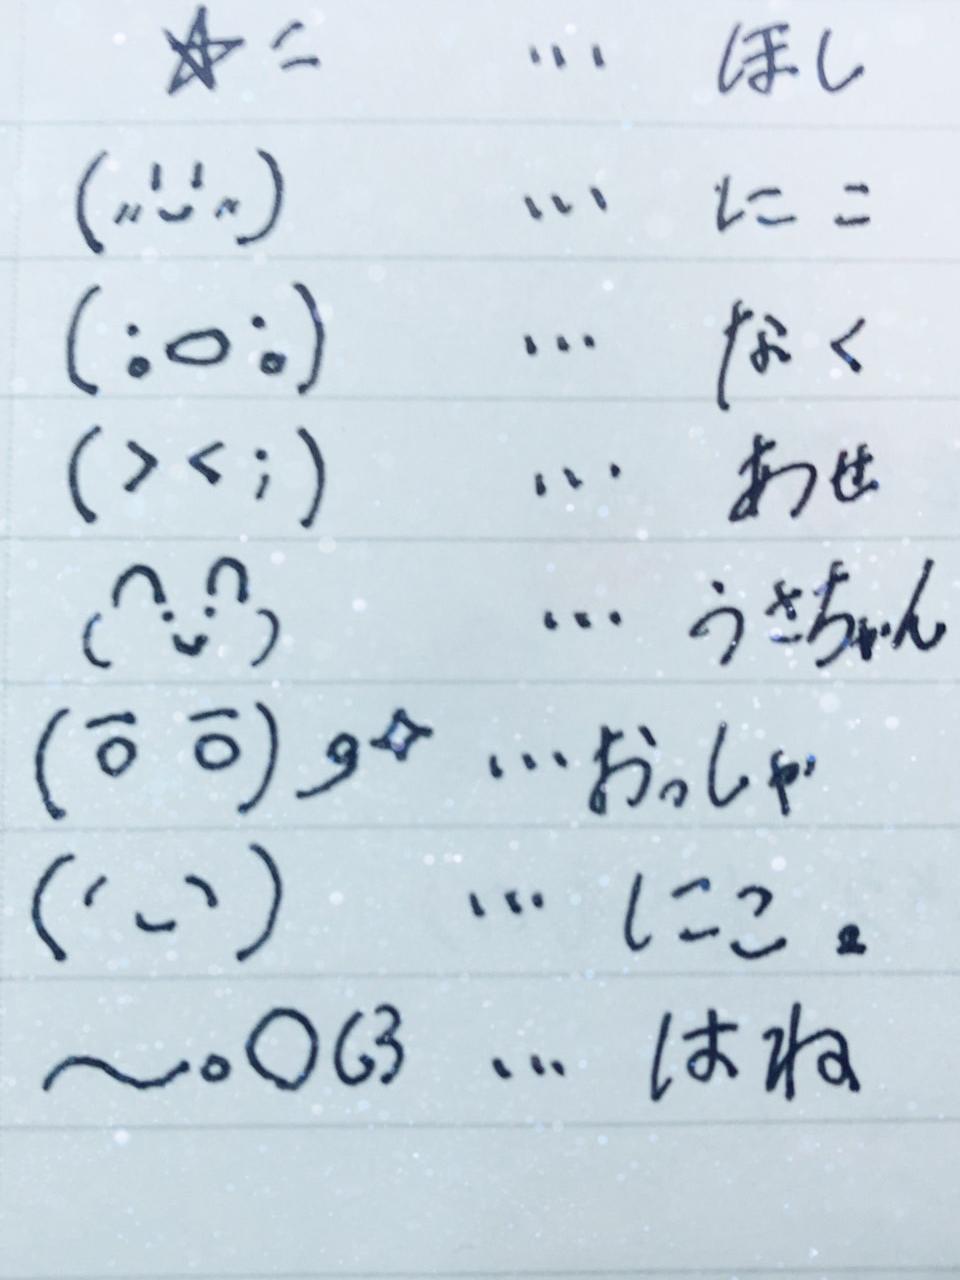 ☆ミ … ほし
(〃╹‿╹〃) … にこ
(;o;) … なく
(><;) … あせ
∩∩ ( ・ ‿ ・ ) … うさちゃん
(ō ō)و✧ … おっしゃ
(´ ‿ `) … にこ2
〜。○გვ … はね